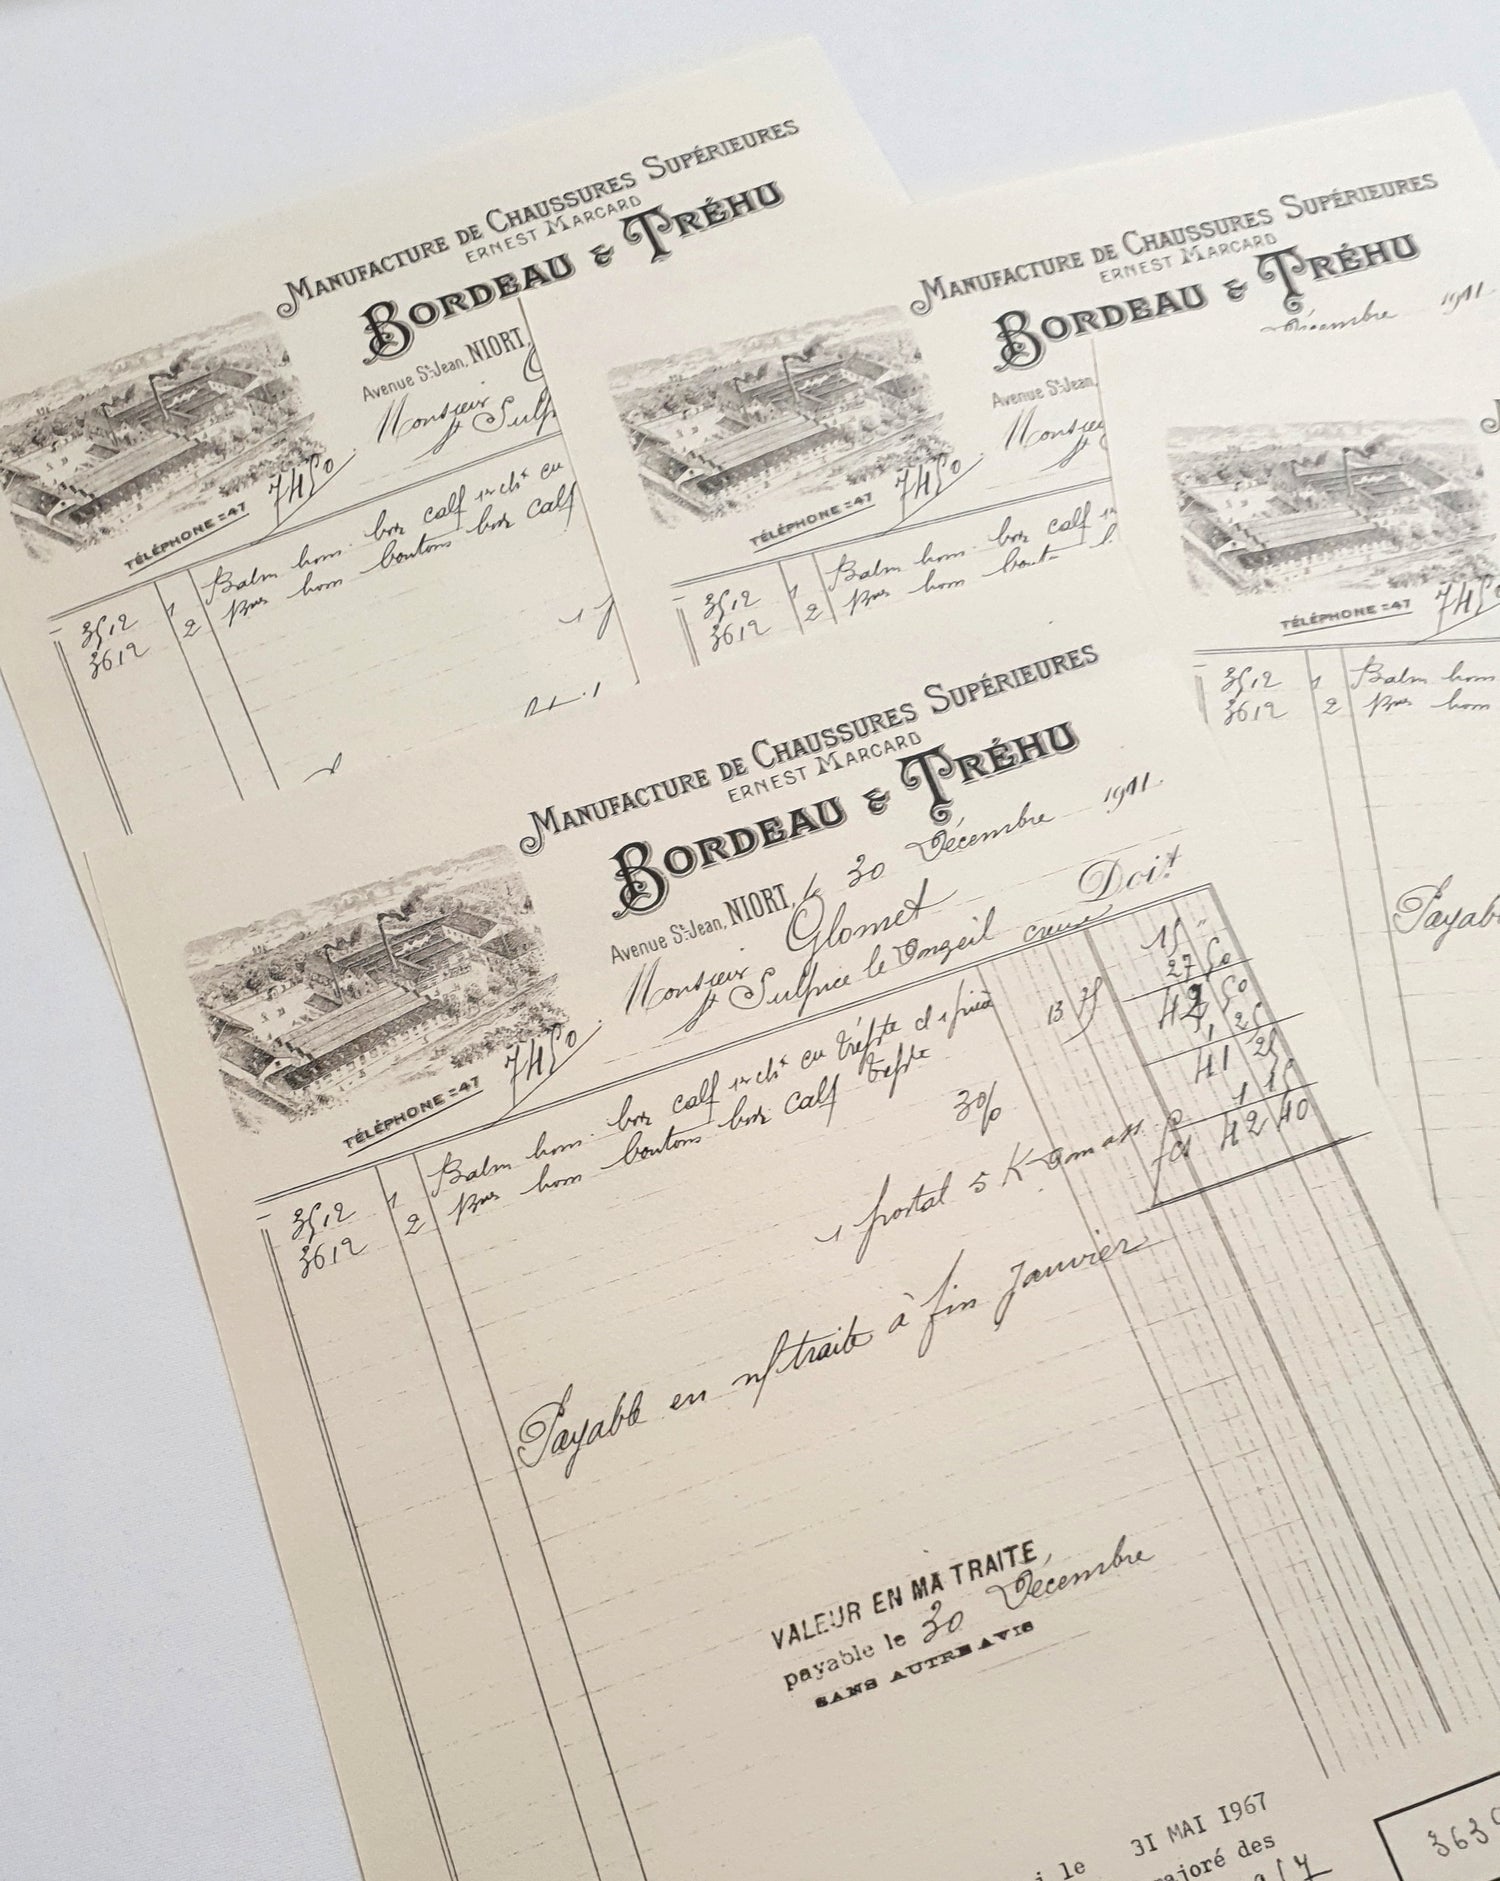 MANUFACTURE DE CHAUSSURES SUPÉRIEURES
ERNEST MARCARD
BORDEAU & TRÉHU
Avenue St Jean, NIORT,
Monsieur
St Sulp
7450
TÉLÉPHONE =47
3512 1 Balm hom. box calf 1er ch* cu
3612 2 hom boutons box calf
MANUFACTURE DE CHAUSSURES SUPÉRIEURES
ERNEST MARCARD
BORDEAU & TRÉHU
Décembre 1911
Avenue St Jean,
Monsieu
St
7450
TÉLÉPHONE =47
3512 1 Balm hom. box calf 1
3612 2 hom bout
7450
TÉLÉPHONE =47
3512 1 Balm hom
3612 2 hom
Payab
MANUFACTURE DE CHAUSSURES SUPÉRIEURES
ERNEST MARCARD
BORDEAU & TRÉHU
Avenue St Jean, NIORT, le 30 Décembre 1911
Monsieur Glomet Doit
St Sulpice le
7450
TÉLÉPHONE =47
3512 1 Balm hom. box calf 1er ch* cu 15 -
3612 2 hom boutons box calf 13 75 27 50
42 50
3% 1 25
41 25
1 postal 5 K 1 15
42 40
Payable en n/ traite à fin Janvier
VALEUR EN MA TRAITE,
payable le 30 Décembre
SANS AUTRE AVIS
i le 31 MAI 1967
ajoré des
363